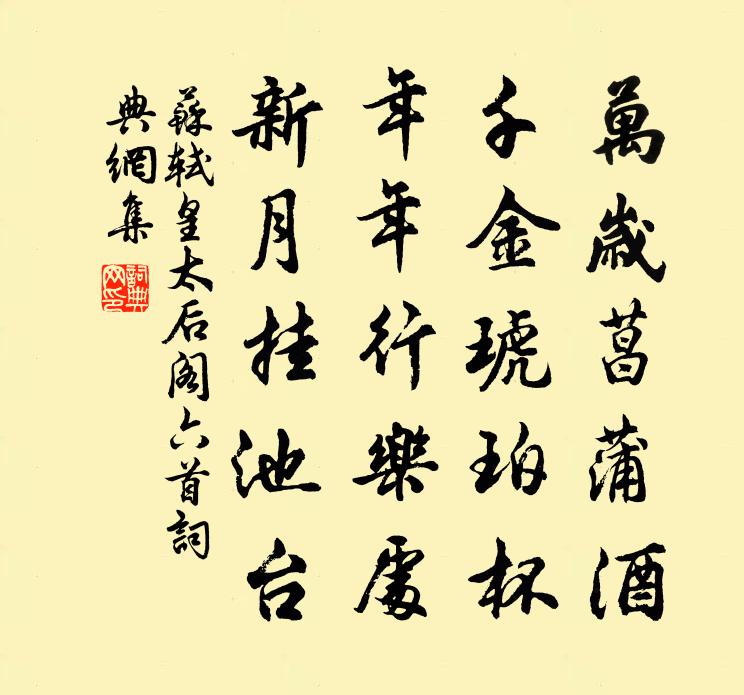 萬歲菖蒲酒
千金琥珀杯
年年行樂處
新月挂池台
蘇軾皇太后阁六首詞
典網集
詞典
网印